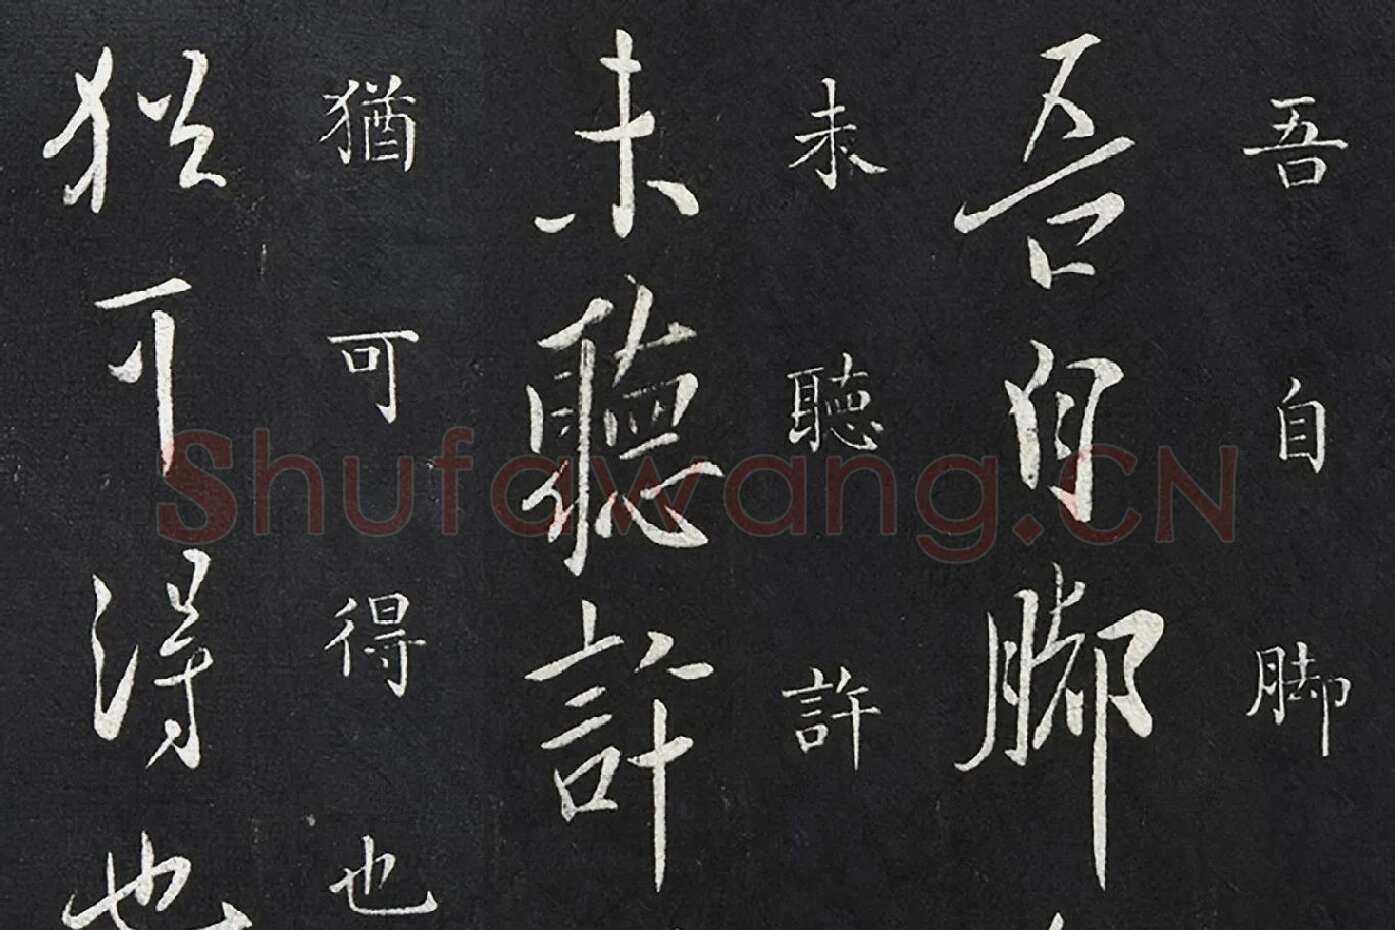 吾自脚
吾自脚
未聽許
未聽許
猶可得也
猶可得也
Shufawang.CN